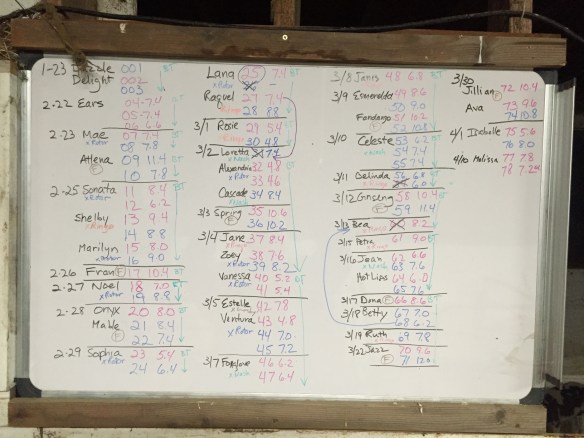 1-23 Dazzle 001 BT
Delight 002
003
2-22 Ears 04-7.4
05-7.4
06 6.6
2-23 Mae 07 7.4 BT
x Rotor 08 7.8
Athena 09 11.4
F 10 7.8
2-25 Sonata 11 8.4 BT
x Rotor 12 6.2
Shelby 13 9.4
x Ringo 14 8.8
Marilyn 15 8.0
16 9.0
2-26 Fran F 17 10.4 BT
2-27 Noel 18 7.0 BT
x Rotor 19 8.8
2-28 Onyx 20 8.0 BT
Mable 21 8.4
F 22 7.4
2-29 Sophia 23 5.4 BT
x Rotor 24 6.4
Lana 25 7.4 BT
x Rotor
Raquel 27 7.4
28 8.8
3/1 Rosie 29 5.4 BT
x Ringo 30 4.8
3/2 Loretta 7.4
Alexandria 32 4.8
x Rotor 33 4.6
Cascade 34 8.4
3/3 Spring 35 10.6
F 36 10.2
3/4 Jane 37 8.4
x Ringo
Zoey 38 7.6
x Rotor 39 8.2
Vanessa 40 5.2
x Rotor 41 5.4
3/5 Estelle 42 7.8
Ventura 43 4.8
x Rotor 44 7.0
45 7.2
3/7 46 6.2
47 6.4
3/8 Janis 48 6.8 BT
3/9 Esmerelda 49 8.6
50 9.0
Fandango 51 10.2
F 52 10.8
3/10 Celeste 53 6.2
54 7.4
55 7.4
3/11 Belinda 56 6.8
3/12 Ginseng 58 10.4 BT
F 59 11.4
3/13 Bea 8.2
3/15 Petra 61 9.0 BT
3/16 Joan 62 6.6
63 7.6
Hot Lips 64 6.0
65 7.6
3/17 Dana F 66 8.6
3/18 Betty 67 7.0
68 6.2
3/19 Ruth 69 7.8
3/22 Jazz 70 8.6
F 71 12.0
3/30
Jillian 72 10.4
F
Ava 73 9.6
74 10.8
4/1 Isabelle 75 5.6
76 8.0
4/10 Melissa 77 7.8
78 7.2